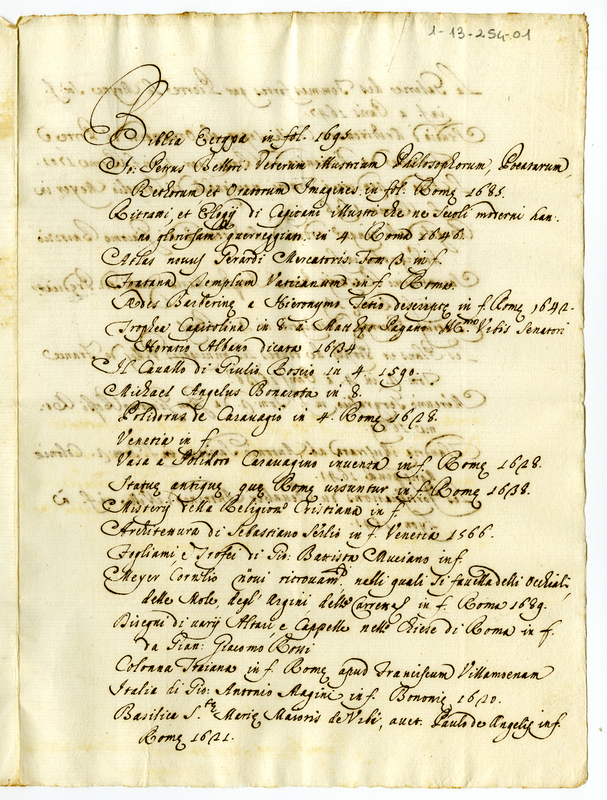 1-13-254-01
Biblia Ectypa in fol. 1695.
Jo: Petrus Bellori. Veterum illustrium Philosophorum, Poetarum,
Rethorum et Oratorum Imagines. in fol. Romę 1685.
Ritratti, et Elogij di Capitani illustri che ne Secoli moderni han-
no gloriosam.te guerreggiato. in 4. Roma 1646.
Atlas novus Gerardi Mercatoris. Tom. 3. in f.
Fontana Templum Vaticanum in f. Romę.
Aędes Barberinę a Hieronymo Tetio descriptę in f. Romę 1642.
Trophea Capitolina in 8. a Matthęo Pagano Ill.mo Vitis Senatori
Horatio Albano dicata 1634
Il Cavallo di Giulio Roscio in 4. 1590.
Michael Angelus Bonarota in 8.
Polidorus de Caravagio in 4. Romę 1628.
Venetia in f.
Vasa a Polidoro Caravagino inventa in f. Romę 1628.
Statuę antiquę quę Romę visuntur in f. Romę 1638.
Misterij della Religionę Cristiana in f.
Architettura di Sebastiano Serlio in f. Venetia 1566.
Fogliami e Trofei di Gio: Battista Muciano in f.
Meyer Cornelio nuovi ritrovam.ti nelli quali si favella delli Occhiali,
delle Mole, degl' Argini delle Carrena in f. Roma 1689.
Disegni di varij Altari e Cappelle nelle Chiese di Roma in f.
da Gian: Giacomo Rossi
Colonna Traiana in f. Romę apud Franciscum Villamoenam
Italia di Gio: Antonio Magini in f. Bononię 1620.
Basilica S.tę Marię Maioris de Vrbe, auct. Paulo de Angelis in f.
Romę 1621.